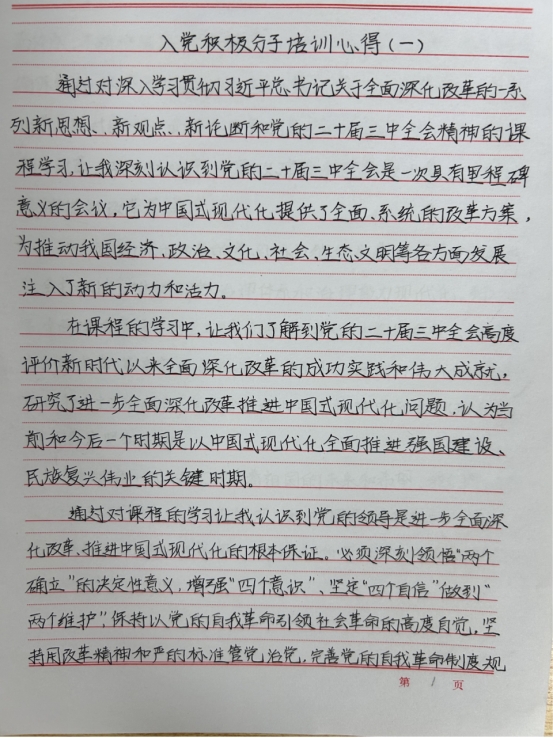 入党积极分子培训心得（一）
通过对深入学习贯彻习近平总书记关于全面深化改革的一系
列新思想、新观点、新论断和党的二十届三中全会精神的课
程学习,让我深刻认识到党的二十届三中全会是一次具有里程碑
意义的会议，它为中国式现代化提供了全面、系统的改革方案，
为推动我国经济、政治、文化、社会、生态文明等各方面发展
注入了新的动力和活力。
在课程的学习中,让我们了解到党的二十届三中全会高度
评价新时代以来全面深化改革的成功实践和伟大成就，
研究了进一步全面深化改革推进中国式现代化问题，认为当
前和今后一个时期是以中国式现代化全面推进强国建设、
民族复兴伟业的关键时期。
通过对课程的学习让我认识到党的领导是进一步全面深
化改革、推进中国式现代化的根本保证。必须深刻领悟“两个
确立”的决定性意义，增强“四个意识”、坚定“四个自信”做到“
两个维护”，保持以党的自我革命引领社会革命的高度自觉，坚
持用改革精神和严的标准管党治党，完善党的自我革命制度规
第 1 页